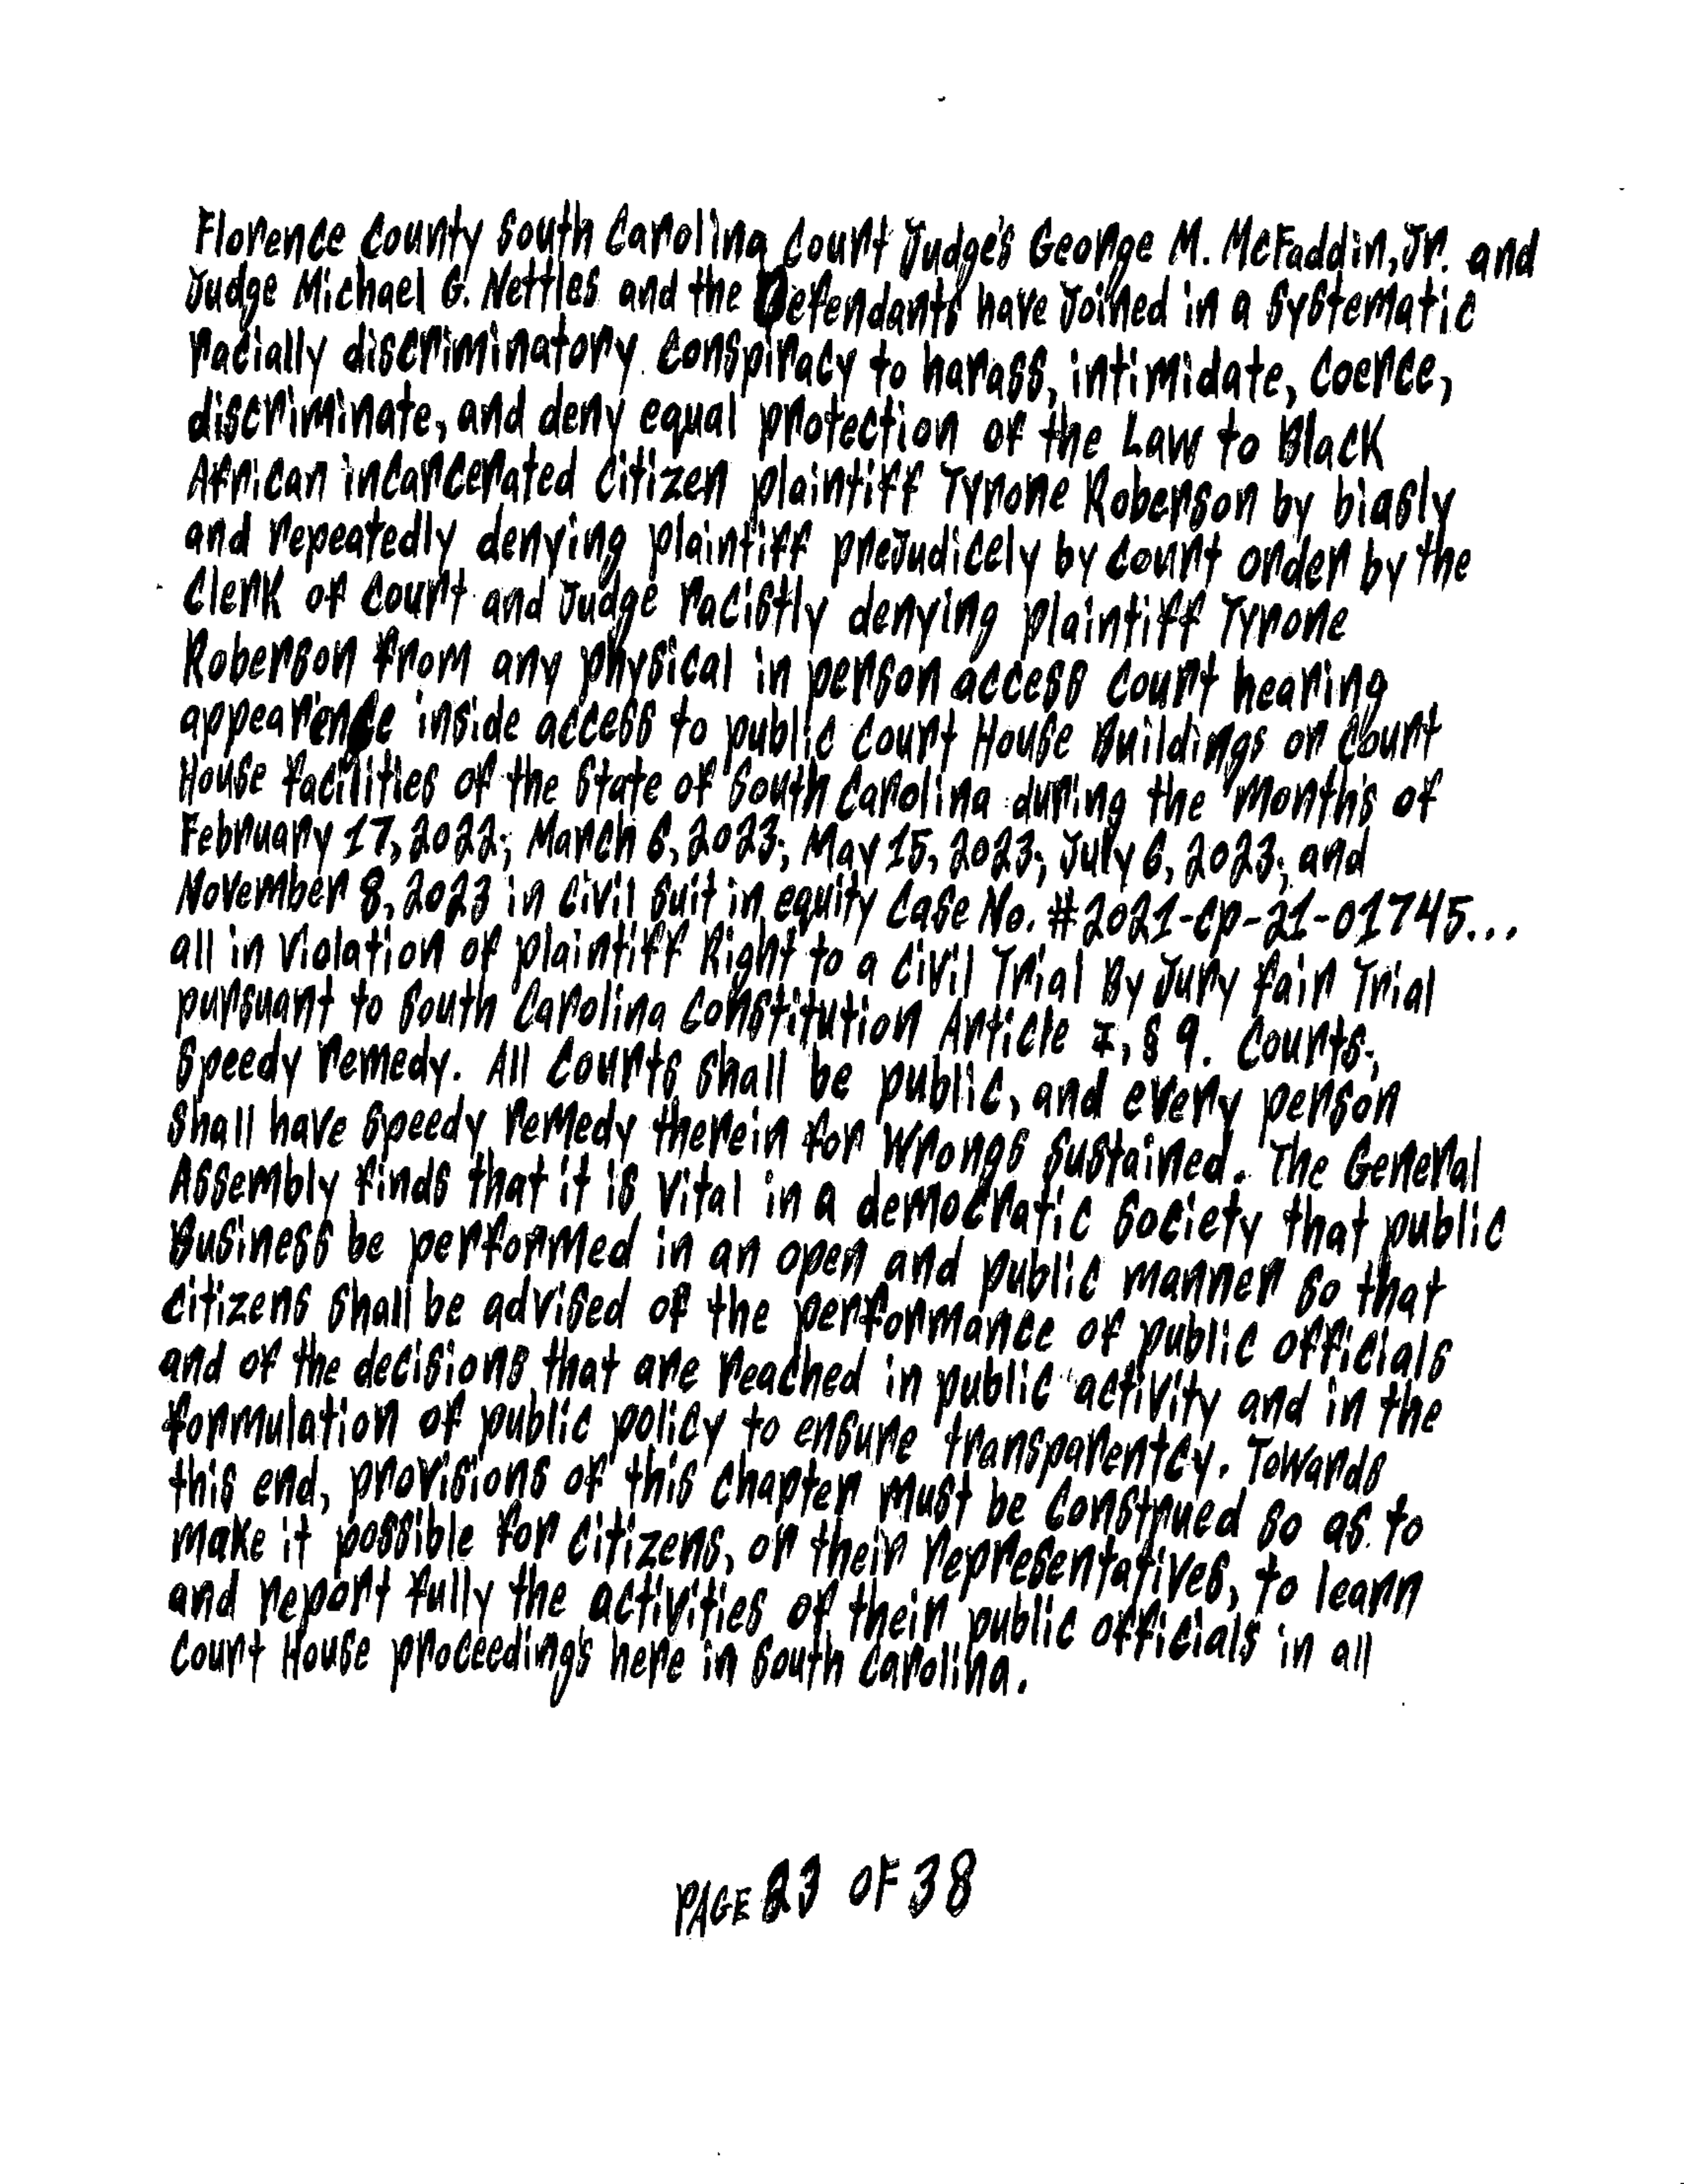 Florence County South Carolina Court Judge's George M. McFaddin, Jr. and
Judge Michael G. Nettles and the Defendants have Joined in a Systematic
racially discriminatory conspiracy to harass, intimidate, coerce,
discriminate, and deny equal protection of the Law to Black
African incarcerated Citizen plaintiff Tyrone Roberson by biasly
and repeatedly denying plaintiff preJudicely by court order by the
Clerk of Court and Judge racistly denying plaintiff Tyrone
Roberson from any physical in person access Court hearing
appearence inside access to public Court House Buildings or Court
House facilities of the State of South Carolina during the month's of
February 17, 2022; March 6, 2023; May 15, 2023; July 6, 2023; and
November 8, 2023 in Civil Suit in equity Case No. #2021-cp-21-01745...
all in violation of plaintiff Right to a Civil Trial By Jury fair Trial
pursuant to South Carolina Constitution Article I, § 9. Courts;
Speedy remedy. All Courts shall be public, and every person
shall have speedy remedy therein for Wrongs Sustained. The General
Assembly finds that it is vital in a democratic Society that public
Business be performed in an open and public manner so that
citizens shall be advised of the performance of public officials
and of the decisions that are reached in public activity and in the
formulation of public policy to ensure transparentcy. Towards
this end, provisions of this chapter must be Construed so as to
make it possible for citizens, or their representatives, to learn
and report fully the activities of their public officials in all
Court House proceeding's here in South Carolina.
PAGE 23 OF 38